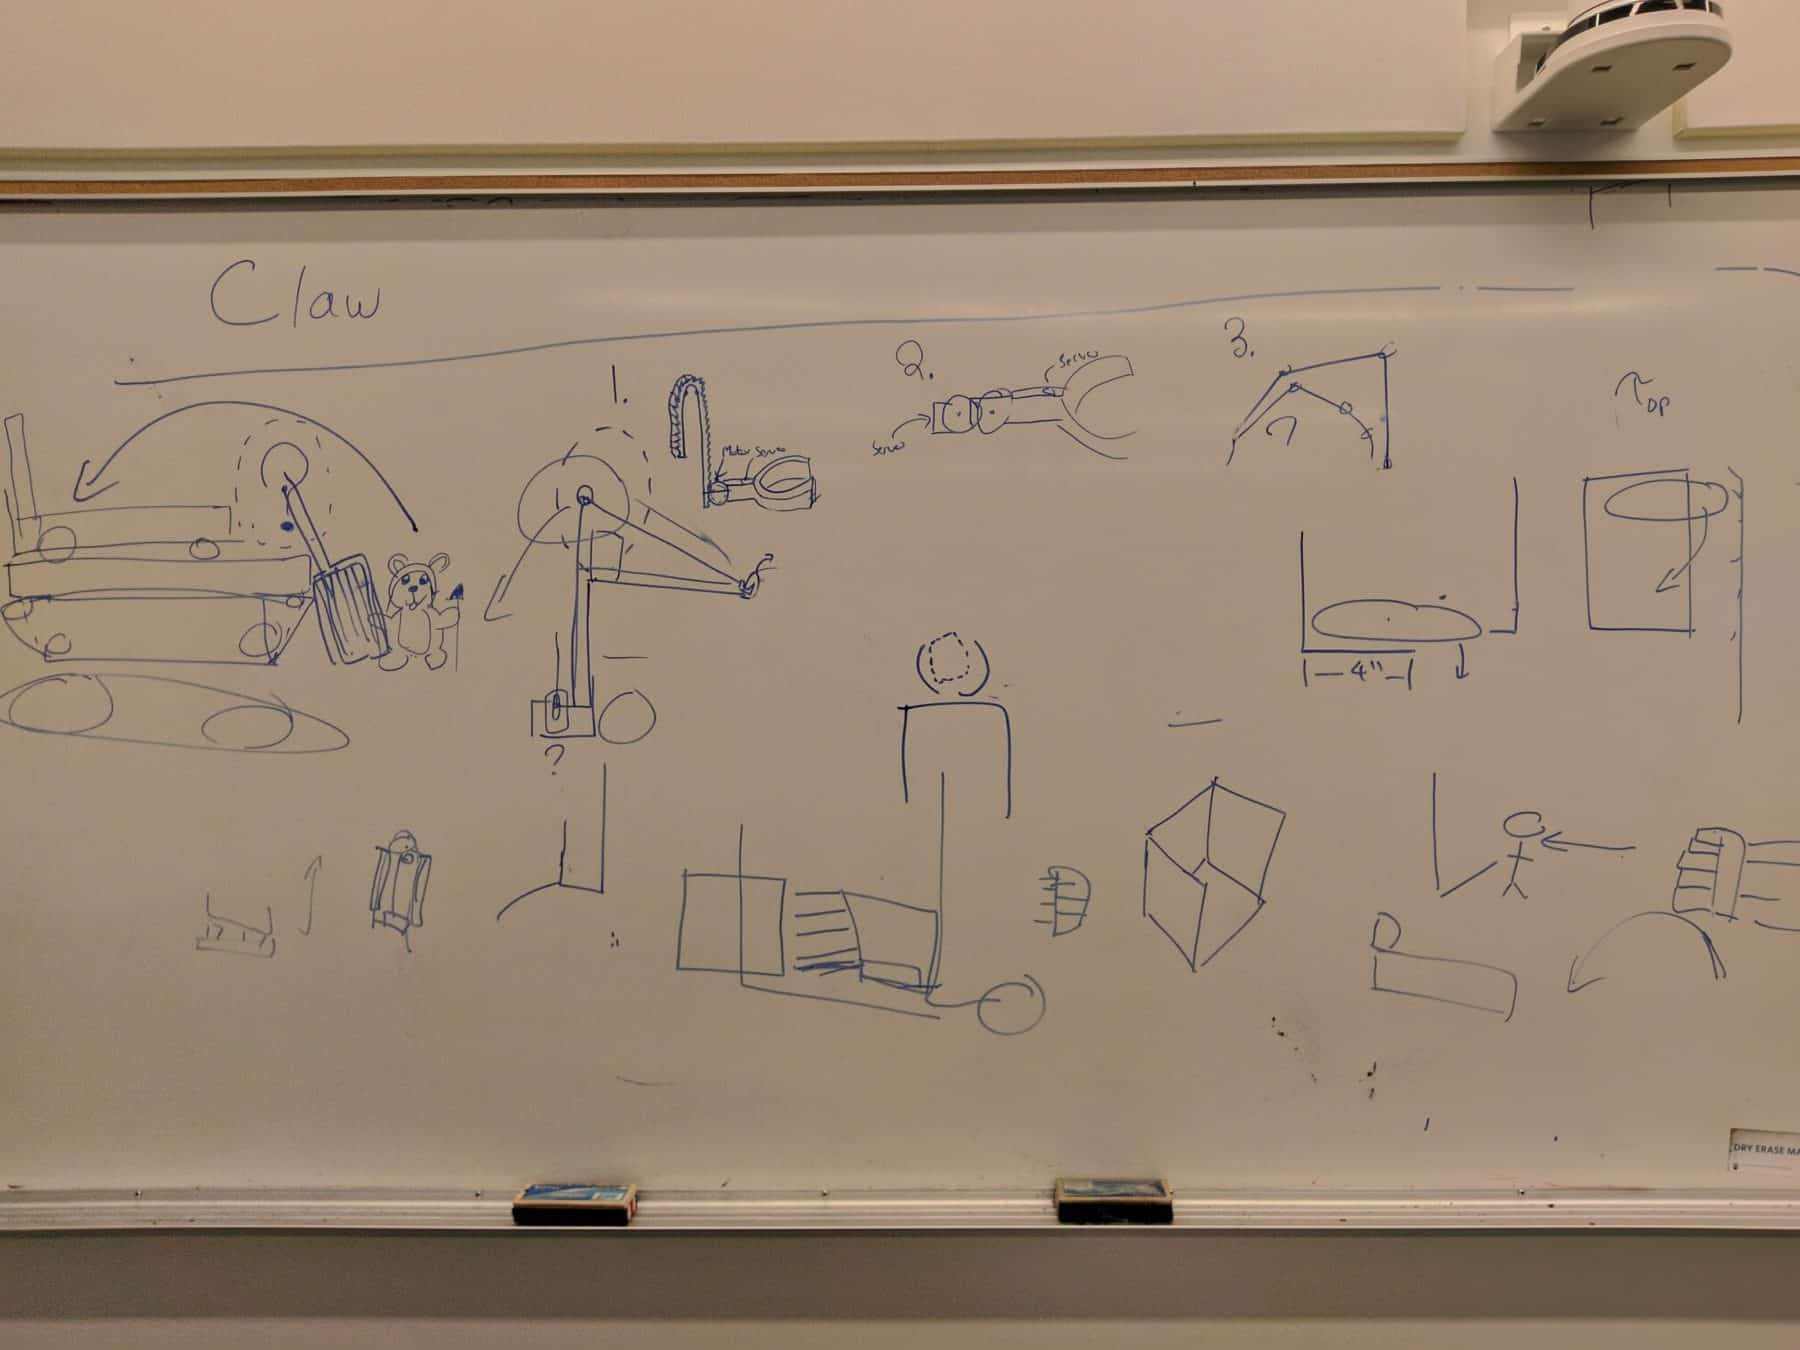 Claw
1.
Motor Servo
2.
Servo
Servo
3.
?
Top
4"
?
DRY ERASE MA